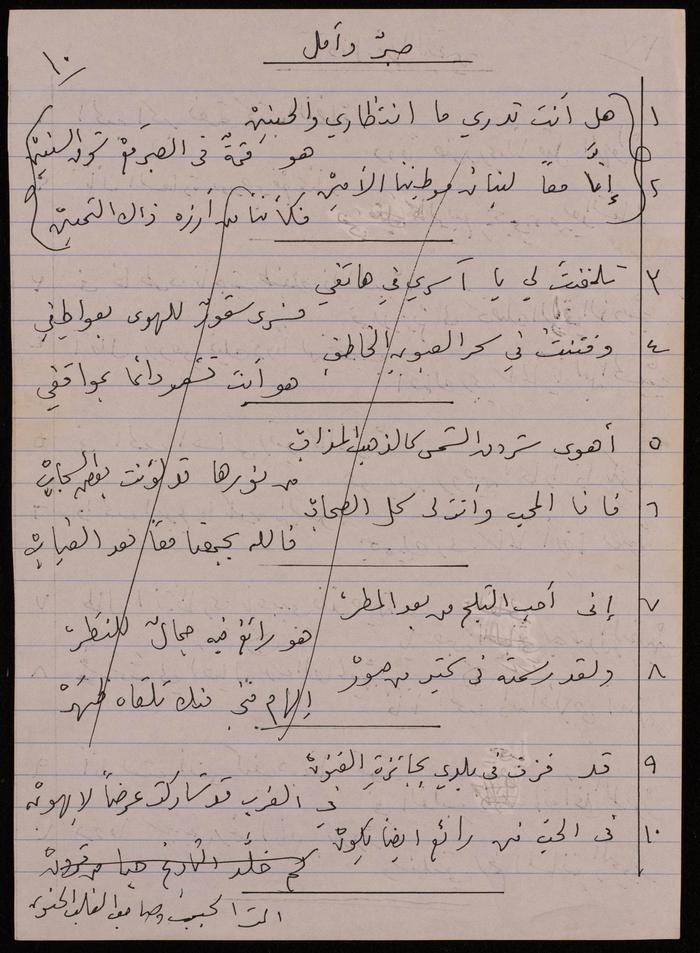 صبرٌ وأمل
١٠
١ هل أنت تدري ما انتظاري والحنين
هو قمةٌ في الصبر مع السنين
٢ إنَّا معاً لبنان موطننا الأمين
فكأننا من أرزه ذاك الثمين
٣ تلفنتَ لي يا آسري في هاتفي
فسرى للهوى بعواطفي
٤ وفتنتُ في سحر العيون الخاطف
هو أنت تشهد دائما بمواقفي
٥ أهوى شروق الشمس كالذهب المذاب
من نورها قد لوّنت بعض السحاب
٦ فأنا المحب وأنت لي كل الصحاب
فالله يجمعنا معاً بعد الغياب
٧ إني أحب الثلج من بعد المطر
هو رائع فيه جمالٌ للنظر
٨ ولقد رسمته في كثير من صور
إلهام فني منك تلقاه ظهر
٩ قد فزت في بلدي بجائزة الفنون
في الغرب قد شاركت عرضاً لا يهون
١٠ في الحب فن رائع أيضا يكون
كم خلَّد التاريخ حبا من قرون
أنت الحبيب وصاحب القلب الحنون